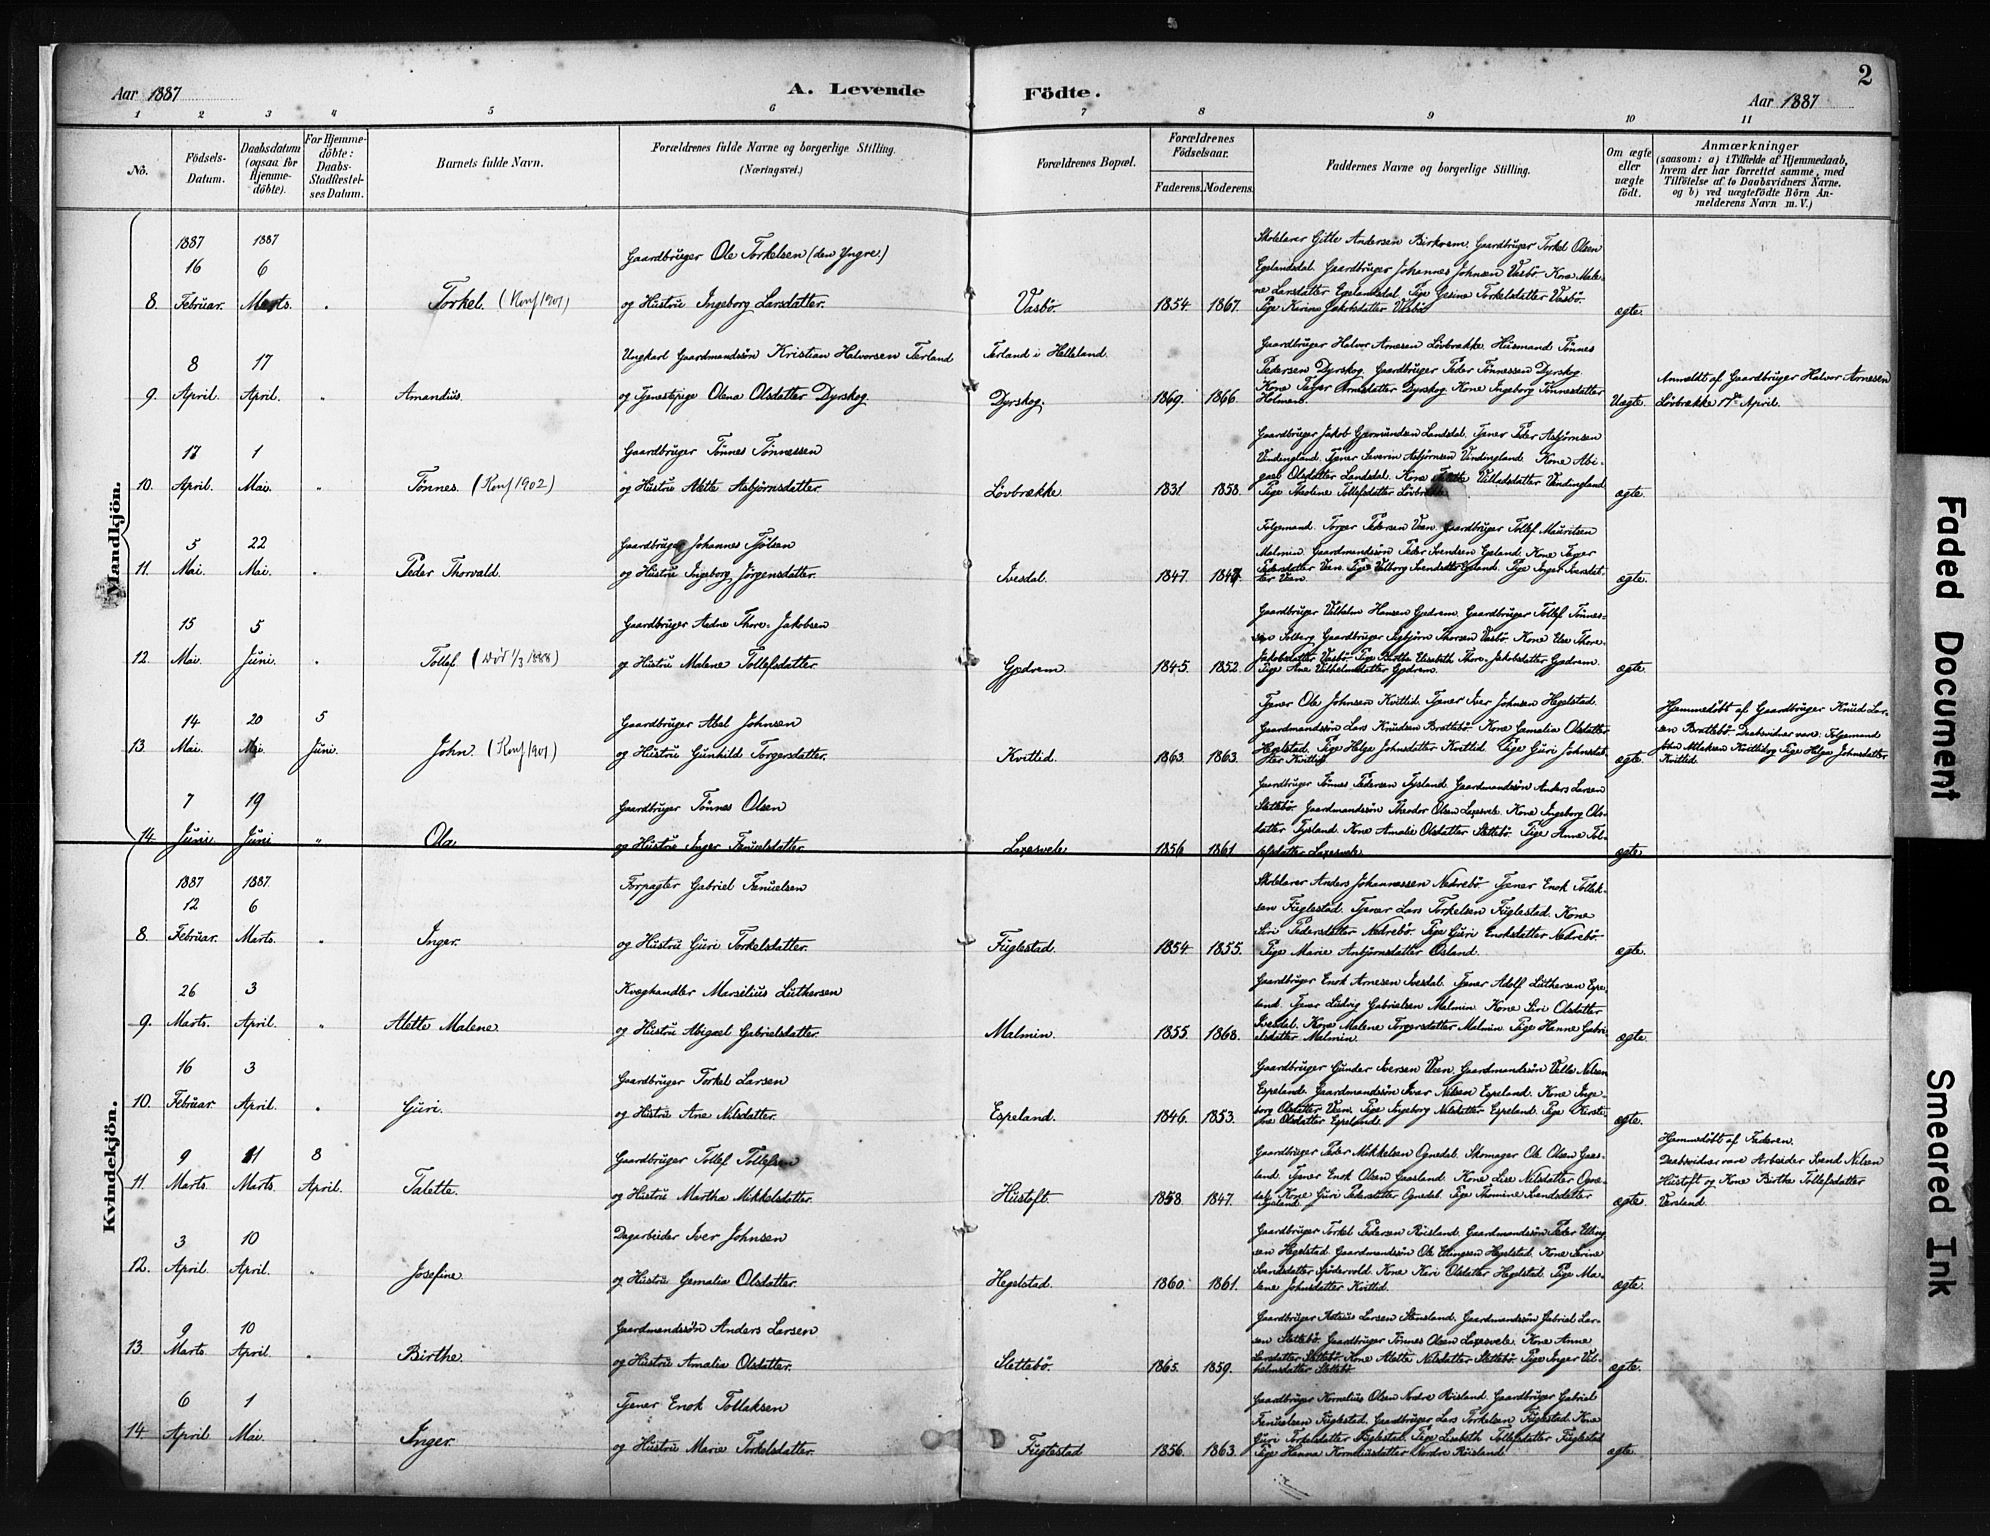 2
Aar 1887
A. Levende Födte.
Aar 1887
1 2 3 4 5 6 7 8 9 10 11
No.
Födsels-Datum.
Daabsdatum (ogsaa for Hjemme-döbte).
For Hjemme-döbte: Daabs-Stadfæstel-ses Datum.
Barnets fulde Navn.
Forældrenes fulde Navne og borgerlige Stilling.
(Næringsvei.)
Forældrenes Bopæl.
Forældrenes Födselsaar.
Faderens. Moderens.
Faddernes Navne og borgerlige Stilling.
Om ægte eller uægte födt.
Anmærkninger
(saasom: a) i Tilfælde af Hjemmedaab,
hvem der har forrettet samme, med
Tilföielse af to Daabsvidners Navne.
og b) ved uægtefödte Börn An-
melderens Navn m. V.)
Mandkjön.
1887 1887
16 6 Gaardbruger Ole Torkelsen (den Yngre)
8. Februar. Marts. " Torkel. (Konf 1901) og Hustru Ingeborg Larsdatter. Vasbö. 1854. 1867. ægte.
Skolelærer Gitle Andersen Birkrem. Gaardbruger Torkel Olsen
Egelandsdal. Gaardbruger Johannes Johnsen Vasbö. Kone Male-
ne Larsdatter Egelandsdal. Pige Gesine Torkelsdatter Vasbö.
Pige Karine Jakobsdatter Vasbö
8 17 Ungkarl Gaardmandssön Kristian Halvorsen Terland Terland i Helleland.
9. April. April. " Amandus. og Tjenestepige Olena Olsdatter Dyrskog. Dyrskog. 1869. 1866. Uægte.
Gaardbruger Halvor Arnesen Lövbrække. Husmand Tönnes
Pedersen Dyrskog. Gaardbruger Peder Tönnessen Dyrskog.
Kone Inger Dyrskog. Kone Ingeborg Tönnesdatter
Holmen.
Anmeldt af Gaardbruger Halvor Arnesen
Lövbrække 17de April.
17 1 Gaardbruger Tönnes Tönnessen
10. April. Mai. " Tönnes. (Konf 1902) og Hustru Alette Asbjörnsdatter. Lövbrække. 1831. 1858. ægte.
Gaardbruger Jakob Gjermundsen Landsdal. Tjener Peder Asbjörnsen
Vindingland. Tjener Severin Asbjörnsen Vindingland. Kone Abi-
gael Olsdatter Landsdal. Kone Villadsdatter Vindingland
Pige Tollefsdatter Lövbrække
5 22 Gaardbruger Johannes Fjölsen
11. Mai. Mai. " Peder Thorvald. og Hustru Ingeborg Jörgensdatter. Ivesdal. 1847. 1847. ægte.
Folgemand Torger Pedersen Veen. Gaardbruger Tollef Mauritsen
Malmin. Gaardmandssön Peder Svendsen Egeland. Kone Inger
Pedersdatter Veen. Pige Valborg Svendsdatter Egeland. Pige Inger Iversdat-
ter Veen.
15 5 Gaardbruger Aadne Thore-Jakobsen
12. Mai. Juni. " Tollef. (Död 1/3 1888) og Hustru Malene Tollefsdatter. Gjedrem. 1845. 1852. ægte.
Gaardbruger Vilhelm Hansen Gjedrem. Gaardbruger Tollef Tönnes-
sen Solberg. Gaardbruger Sigbjörn Thorsen Vasbö. Kone Else Thore-
Jakobsdatter Vasbö. Pige Birthe Elisabeth Thore-Jakobsdatter Gjedrem.
Pige Ane Vilhelmsdatter Gjedrem.
14 20 5 Gaardbruger Abel Johnsen
13. Mai. Mai. Juni. John. (Konf 1901) og Hustru Gunhild Torgersdatter. Kvitlid. 1863. 1863. ægte.
Tjener Ole Johnsen Kvitlid. Tjener Iver Johnsen Hegelstad.
Gaardmandssön Lars Knudsen Bratebö. Kone Gamalia Olsdatter
Hegelstad. Pige Helge Johnsdatter Kvitlid. Pige Guri Johnsdat-
ter Kvitlid.
Hjemmedöbt af Gaardbruger Knud Lar-
sen Bratebö. Daabsvidner vare: Folgemand
John Atlaksen Kvitlid og Pige Helge Johnsdatter
Kvitlid.
7 19 Gaardbruger Tönnes Olsen
14. Juni. Juni " Ole. og Hustru Inger Fenuelsdatter. Laxesvele. 1856. 1861. ægte.
Gaardbruger Tönnes Pedersen Tysland. Gaardmandssön Anders Larsen
Slettebö. Gaardmandssön Theodor Olsen Laxesvele. Kone Ingeborg Ols-
datter Tysland. Kone Amalie Olsdatter Slettebö. Pige Anne Tol-
lefsdatter Laxesvele.
Kvindekjön.
1887 1887.
12 6 Forpagter Gabriel Fenuelsen
8. Februar. Marts. " Inger. og Hustru Guri Torkelsdatter. Fuglestad. 1854. 1855. ægte.
Skolelærer Anders Johannessen Nedrebö. Tjener Enok Tollak-
sen Fuglestad. Tjener Lars Torkelsen Fuglestad. Kone
Siri Pedersdatter Nedrebö. Pige Guri Enoksdatter Nedrebö.
Pige Marie Asbjörnsdatter Osland.
26 3 Kvæghandler Marselius Luthersen
9. Marts. April. " Alette Malene og Hustru Abigael Gabrielsdatter. Malmin. 1855. 1868. ægte.
Gaardbruger Enok Arnesen Ivesdal. Tjener Adolf Luthersen Espe-
land. Tjener Ludvig Gabrielsen Malmin. Kone Siri Olsdatter
Ivesdal. Kone Malene Torgersdatter Malmin. Pige Hanne Gabri-
elsdatter Malmin.
16 3 Gaardbruger Torkel Larsen
10. Februar. April. " Guri. og Hustru Ane Nilsdatter. Espeland. 1846. 1853. ægte.
Gaardbruger Gunder Iversen Veen. Gaardmandssön Valle Nilsen
Espeland. Gaardmandssön Ivar Nilsen Espeland. Kone Inge-
borg Olsdatter Veen. Pige Ingeborg Nilsdatter Espeland. Pige Kirsti-
ne Olsdatter Espeland.
9 11 8 Gaardbruger Tollef Tollefsen
11. Marts. Marts. April. Talette. og Hustru Martha Mikkelsdatter. Hustoft. 1858. 1847. ægte.
Gaardbruger Peder Mikkelsen Ognedal. Skomager Ole Olsen Gaas-
land. Tjener Enok Olsen Gaasland. Kone Lise Nilsdatter Ogne-
dal. Kone Guri Pedersdatter Ognedal. Pige Thomine

Hjemmedöbt af Faderen.
Daabsvidner vare Arbeider Svend Nilsen
Hustoft og Kone Birthe Tollefsdatter
Værland.
3 10 Dagarbeider Iver Johnsen
12. April. April. " Josefine. og Hustru Gemalia Olsdatter. Hegelstad. 1860. 1861. ægte.
Gaardbruger Torkel Pedersen Röisland. Gaardmandssön Peder Elling-
sen Hegelstad. Gaardmandssön Ole Ellingsen Hegelstad. Kone Serine
Svendsdatter Spödervold. Kone Keri Olsdatter Hegelstad. Pige Ma-
lene Johnsdatter Kvitlid.
9 10 Gaardmandssön Anders Larsen
13. Marts. April. " Birthe. og Hustru Amalia Olsdatter. Slettebö. 1865. 1859. ægte.
Gaardbruger Larsen Stensland. Gaardmandssön Gabriel Lar-
sen Slettebö. Gaardbruger Tönnes Olsen Laxesvele. Kone Anne
Larsdatter Slettebö. Kone Alette Nilsdatter Slettebö. Pige Inger Vil-
helmsdatter Slettebö.
6 1 Tjener Enok Tollaksen
14. April. Mai. " Inger. og Hustru Marie Torkelsdatter. Fuglestad 1856. 1863. ægte.
Gaardbruger Kornelius Olsen Nordre Röisland. Gaardbruger Gabriel
Fenuelsen Fuglestad. Gaardbruger Lars Torkelsen Fuglestad. Kone
Guri Torkelsdatter Fuglestad. Pige Lisabeth Tollefsdatter Fuglestad
Pige Hanna Korneliusdatter Nordre Röisland.
Faded Document
Smeared Ink